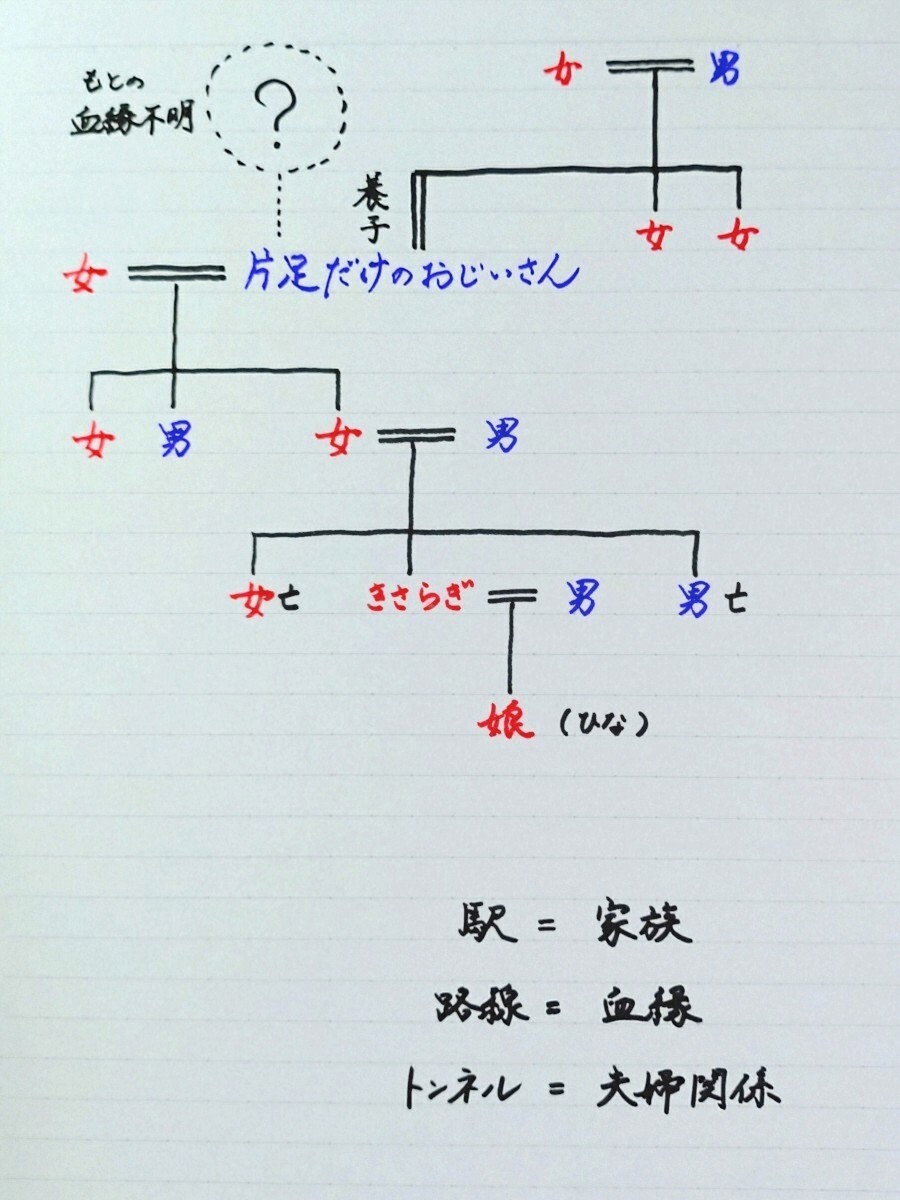 もとの
血縁不明
?
女 男
養子
女 女
女 片足だけのおじいさん
女 男 女 男
女亡 きさらぎ 男 男亡
娘 (ひな)
駅 = 家族
路線 = 血縁
トンネル = 夫婦関係